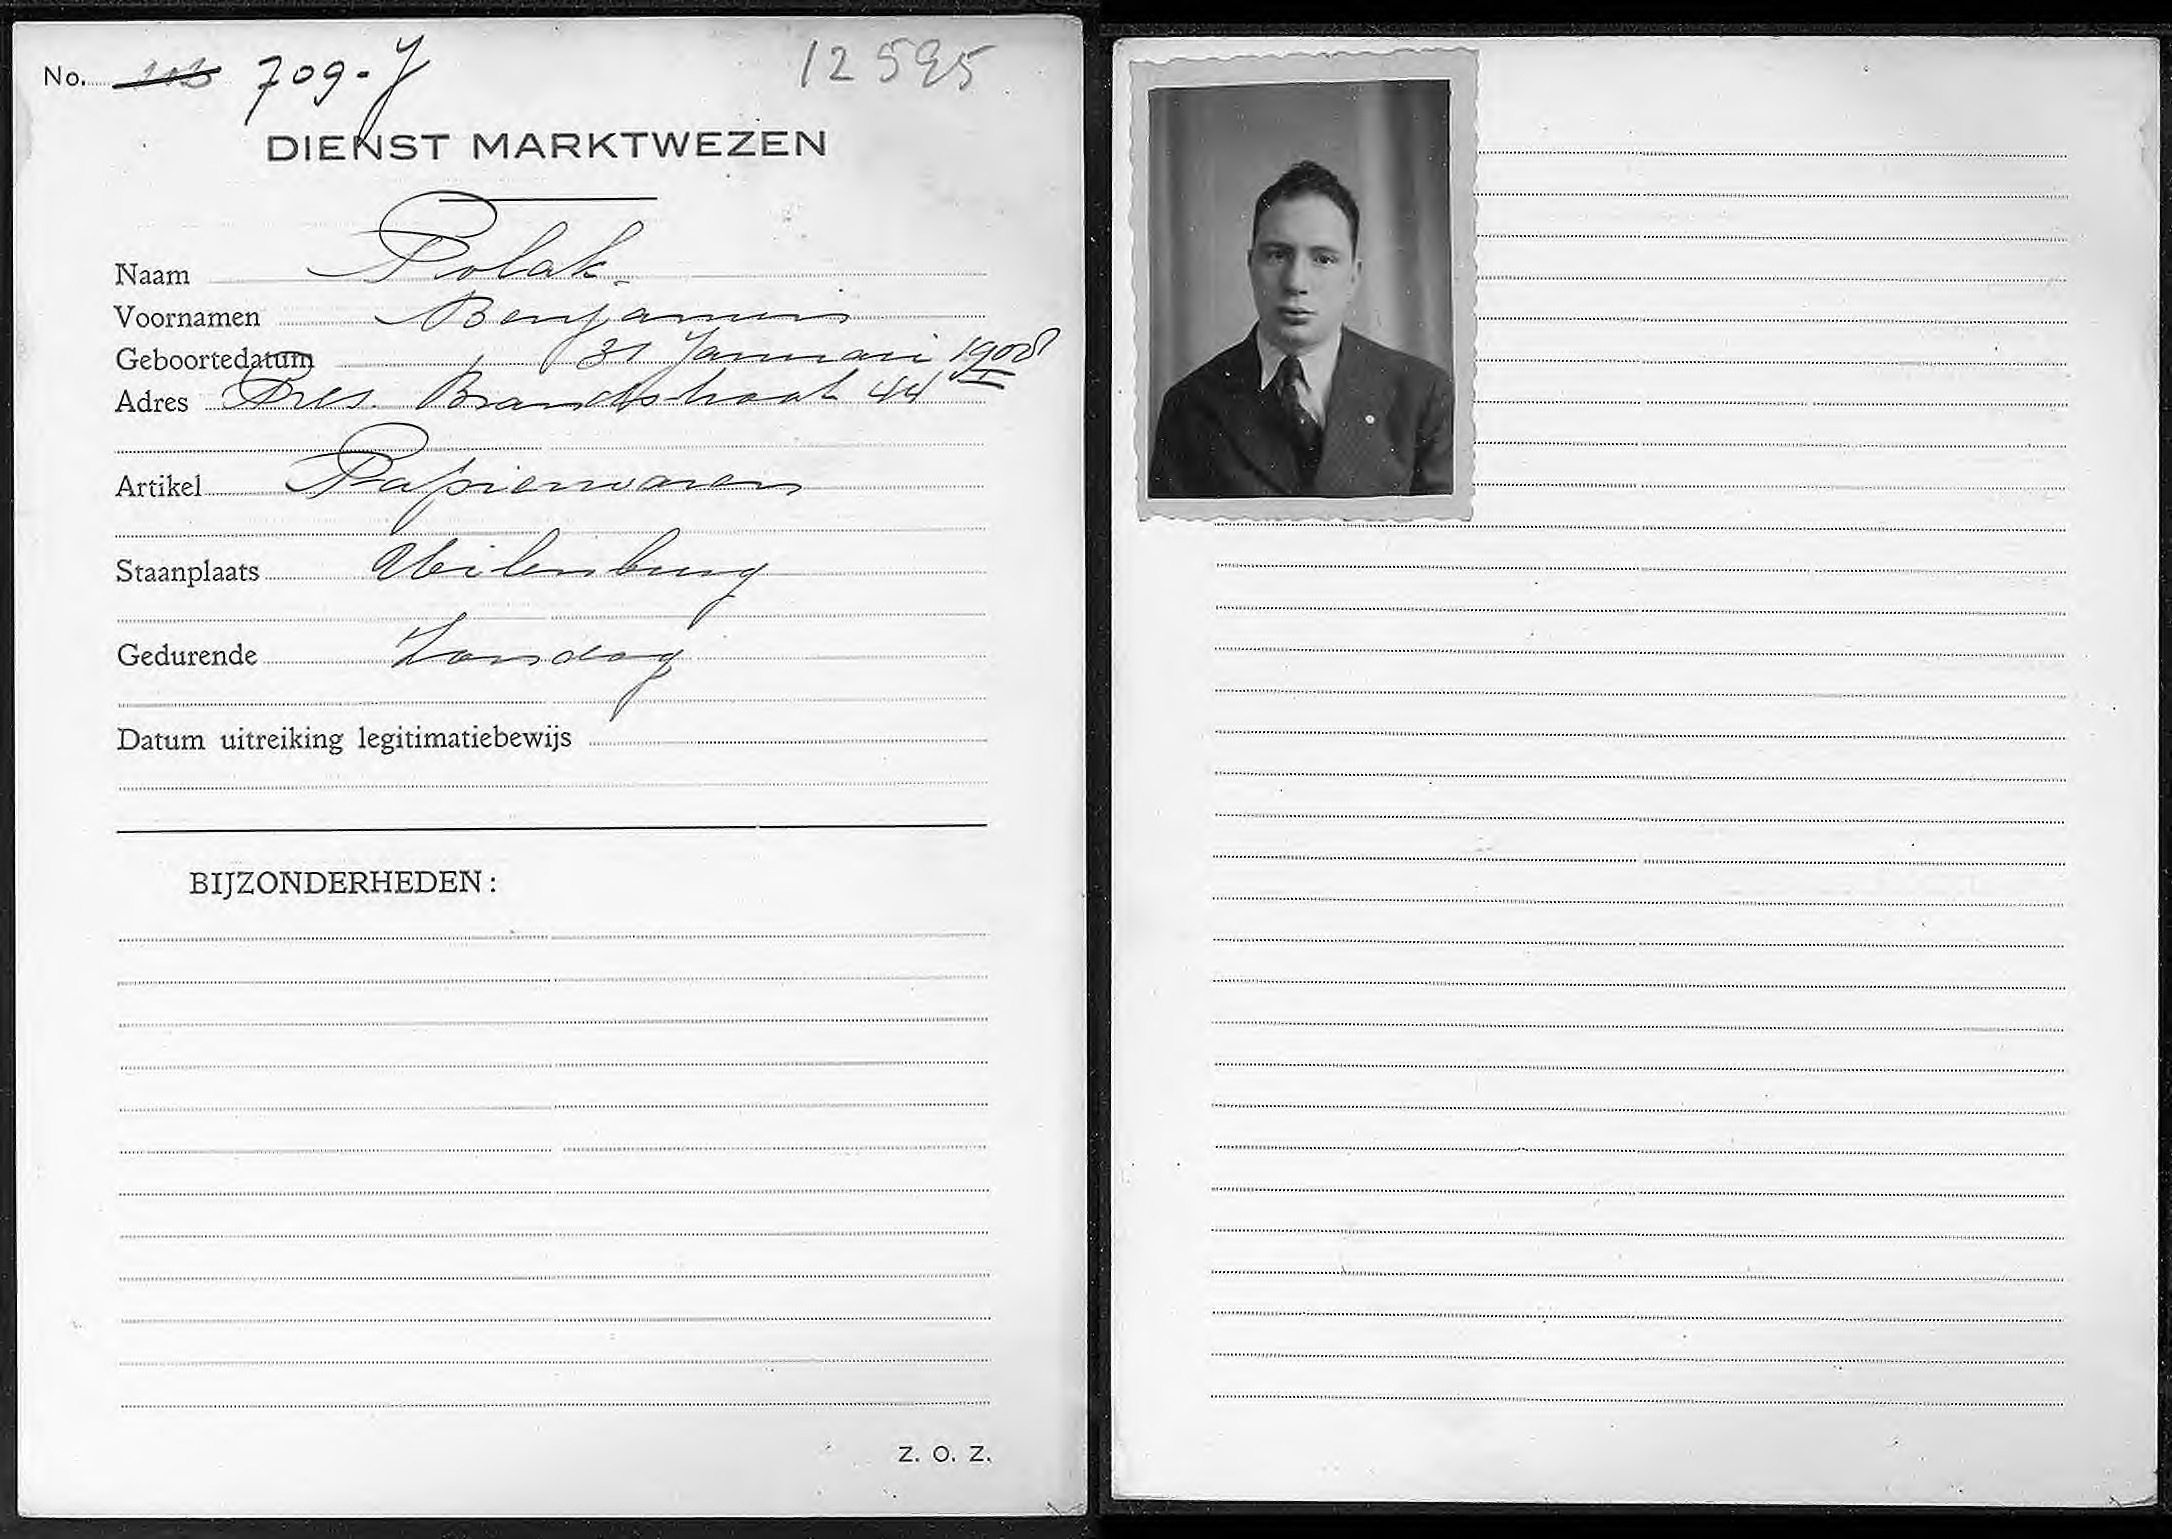 No. 709-J 12595
DIENST MARKTWEZEN
Naam Polak
Voornamen Benjamin
Geboortedatum 31 Januari 1908
Adres Pres. Brandstraat 44 I
Artikel Papierwaren
Staanplaats Uilenburg
Gedurende Zondag
Datum uitreiking legitimatiebewijs
BIJZONDERHEDEN:
Z. O. Z.